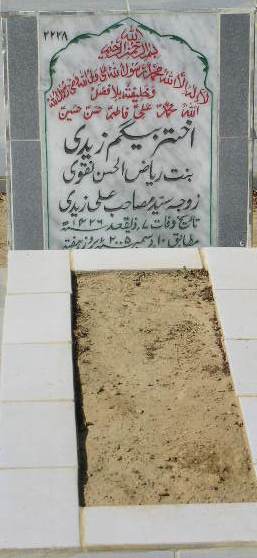 ۲۲۲۸
بسم الله الرحمن الرحیم
لا اله الا الله محمد رسول الله علی ولی الله وصی رسول الله
وخلیفته بلا فصل
الله محمد علی فاطمه حسن حسین
اختر بیگم زیدی
بنت ریاض الحسن نقوی
زوجہ سید مصاحب علی زیدی
تاریخ وفات ۷ ذیقعد ۱۴۲۶ھ
مطابق ۱۰ دسمبر ۲۰۰۵ء بروز ہفتہ